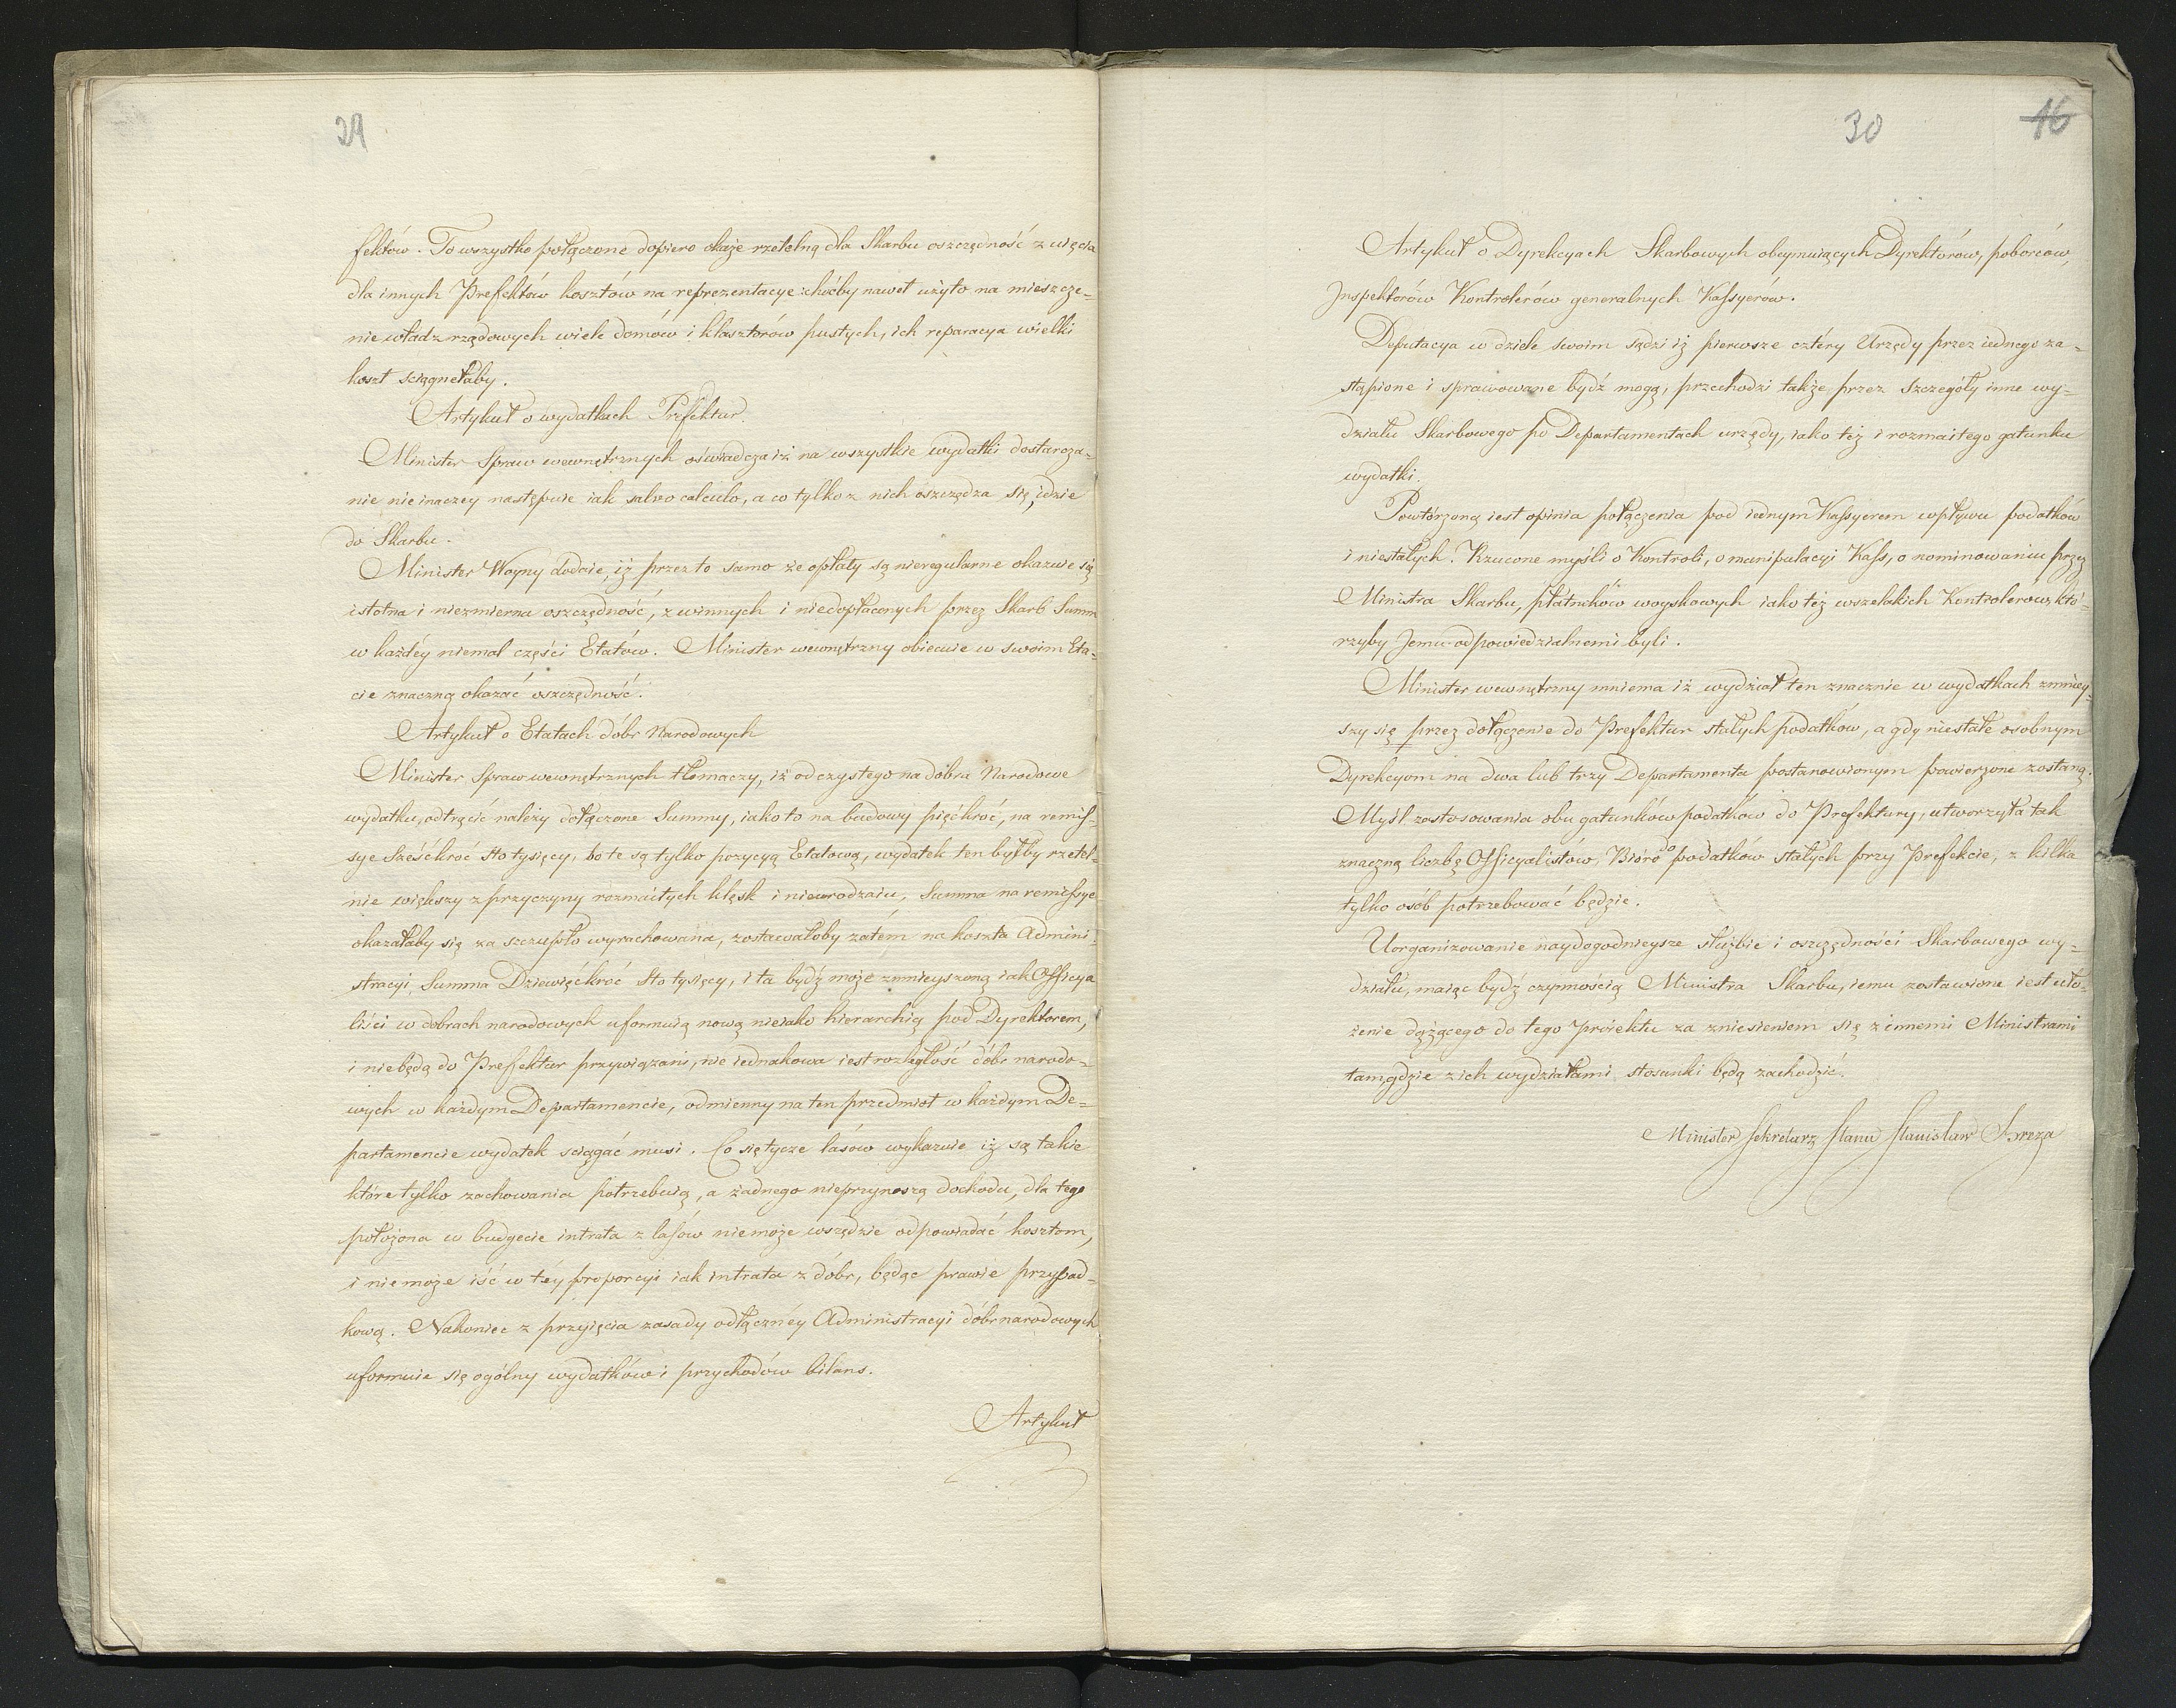 29
fektów. To wszystko połączone dopiero okaże rzetelną dla Skarbu oszczędność z uięcia
dla innych Prefektów kosztów na reprezentacye: choćby nawet użyto na mieszcze-
nie władz rządowych wiele domów i klasztorów pustych, ich reparacya wielki
koszt sciągnełaby.
Artykuł o wydatkach Prefektur.
Minister Spraw wewnętrznych oświadcza iż na wszystkie wydatki dostarcza-
nie nieinaczey następuie iak salvo calculo, a co tylko z nich oszczędza się, idzie
do Skarbu.
Minister Woyny dodaie, iż przez to samo że opłaty są nieregularne okazuie się
istotna i niezmierna oszczędność, z winnych i niedopłaconych przez Skarb Summ
w każdéy niemal części Etatów. Minister wewnętrzny obiecuie w swoim Eta-
cie znaczną okazać oszczędność.
Artykuł o Etatach dóbr Narodowych
Minister Spraw wewnętrznych tłomaczy, iż od czystego na dobra Narodowe
wydatku, odtrącić należy dołączone Summy, iako to na budowy pięćkroć, na remis-
sye Sześćkroć sto tysięcy, bo te są tylko pozycyą Etatową, wydatek ten byłby rzetel-
nie większy z przyczyny rozmaitych klęsk i nieurodzaiu, Summa na remissye
okazałaby się za szczupło wyrachowana, zostawałoby zatém na koszta Admini-
stracyi Summa Dziewięćkroć sto tysięcy, i ta bydź może zmnieyszoną iak Officya
liści w dobrach narodowych uformuią nową nieiako hierarchią pod Dyrektorem,
i niebędą do Prefektur przywiązani, nie iednakowa iest rozległość dóbr narodo-
wych w każdym Departamencie, odmienny na ten przedmiot w każdym De-
partamencie wydatek sciągać musi. Co się tycze lasów wykazuie iż są takie
które tylko zachowania potrzebuią, a żadnego nieprzynoszą dochodu, dla tego
położona w budgecie intrata z lasów niemoże wszędzie odpowiadać kosztom,
i niemoże iść w téy proporcyi iak intrata z dóbr, będąc prawie przypad-
kową. Nakoniec z przyięcia zasady odłącznéy Administracyi dóbr narodowych
uformuie się ogólny wydatków i przychodów bilans.
Artykuł
30
16
Artykuł o Dyrekcyach Skarbowych obeymuiących Dyrektorów, poborców,
Inspektorów Kontrolerów generalnych Kassyerów.
Deputacya w dziele swoim sądzi iż pierwsze cztéry Urzędy przez iednego za-
stąpione i sprawowane bydź mogą, przechodzi także przez szczegóły inne wy-
działu Skarbowego po Departamentach urzędy, iako też i rozmaitego gatunku
wydatki.
Powtórzoną iest opinia połączenia pod iednym Kassyerem wpływu podatków
i niestałych. Rzucone myśli o Kontroli, o manipulacyi Kass, o nominowaniu przez
Ministra Skarbu, płatników woyskowych iako też wszelakich Kontrolerów, któ-
rzyby Jemu odpowiedzialnemi byli.
Minister wewnętrzny mniema iż wydział ten znacznie w wydatkach zmniey-
szy się przez dołączenie do Prefektur stałych podatków, a gdy niestałe osobnym
Dyrekcyom na dwa lub trzy Departamenta postanowionym powierzone zostaną.
Myśl zastosowania obu gatunków podatków do Prefektury, utworzyła tak
znaczną liczbę Officyalistów, Bióro do podatków stałych przy Prefekcie, z kilka
tylko osób potrzebować będzie.
Uorganizowanie naydogodnieysze służbie i oszczędności Skarbowego wy-
działu, maiąc bydź czynnością Ministra Skarbu, iemu zostawione iest uło-
żenie dążącego do tego proiektu za zniesieniem się z innemi Ministrami
tam, gdzie z ich wydziałami stosunki będą zachodzić.
Minister Sekretarz Stanu Stanisław Breza